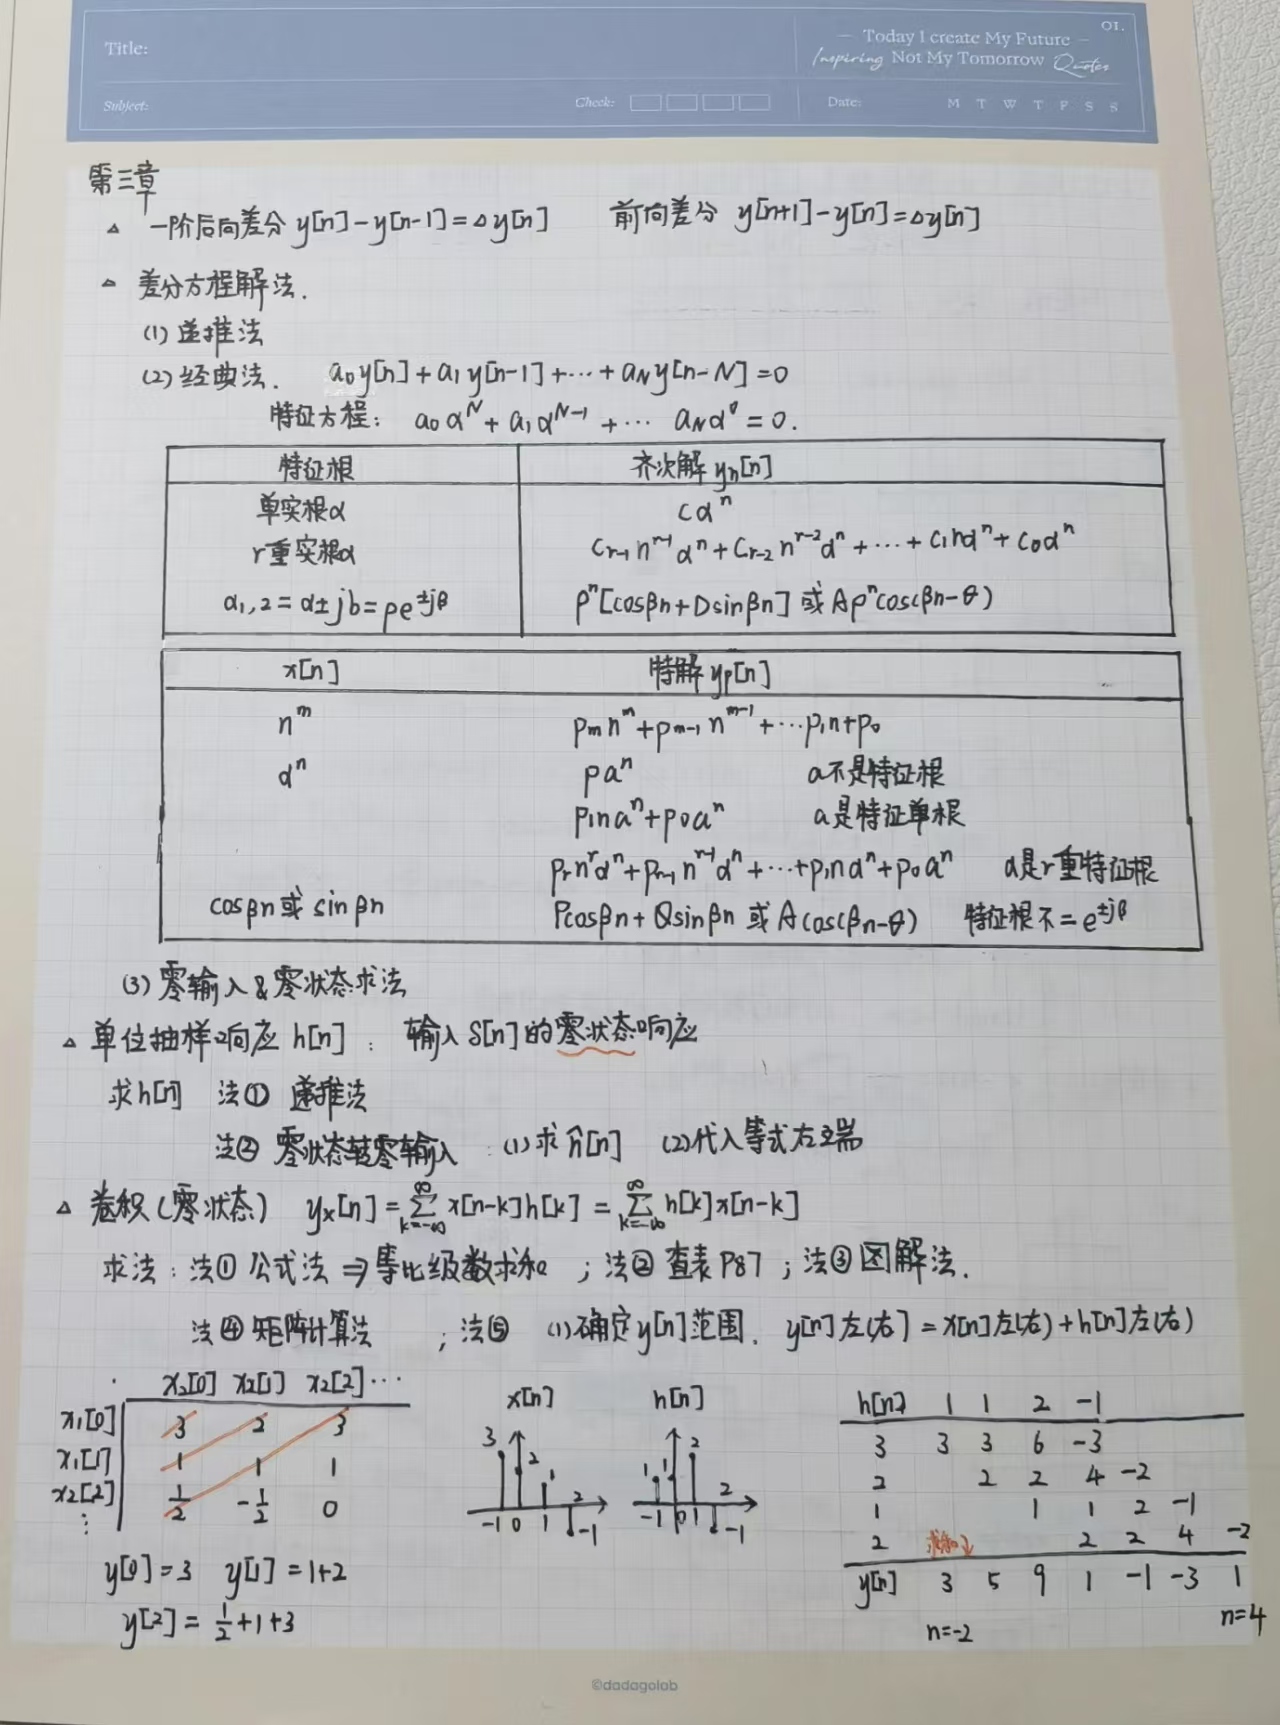 Title:
— Today I create My Future —
Inspiring Not My Tomorrow Quotes
01.
Subject:
Check:
Date:
M T W T F S S
第三章
△ 一阶后向差分 y[n]-y[n-1]=△y[n] 前向差分 y[n+1]-y[n]=△y[n]
△ 差分方程解法.
(1) 递推法
(2) 经典法. a₀y[n]+a₁y[n-1]+⋯+a_N y[n-N]=0
特征方程: a₀α^N+a₁α^{N-1}+⋯ a_Nα^0=0.
特征根 齐次解 yₙ[n]
单实根α cα^n
r重实根α C_{r-1}n^{r-1}α^n+C_{r-2}n^{r-2}α^n+⋯+C₁nα^n+C₀α^n
α₁,₂=α±jb=ρe^{±jβ} ρ^n[cosβn+Dsinβn] 或 Aρ^n cos(βn-θ)
x[n] 特解 yp[n]
n^m p_m n^m+p_{m-1}n^{m-1}+⋯p₁n+p₀
α^n pa^n a不是特征根
p₁na^n+p₀a^n a是特征单根
p_r n^r α^n+p_{r-1}n^{r-1}α^n+⋯+p₁nα^n+p₀α^n α是r重特征根
cosβn 或 sinβn Pcosβn+Qsinβn 或 Acos(βn-θ) 特征根不=e^{±jβ}
(3) 零输入&零状态求法
△ 单位抽样响应 h[n]: 输入δ[n]的零状态响应
求h[n] 法① 递推法
法② 零状态转零输入 (1)求ĥ[n] (2)代入等式右端
△ 卷积(零状态) yₓ[n]=∑_{k=-∞}^{∞}x[n-k]h[k]=∑_{k=-∞}^{∞}h[k]x[n-k]
求法:法① 公式法⇒等比级数求和 ;法② 查表P87 ;法③图解法.
法④ 矩阵计算法 ;法⑤ (1)确定y[n]范围. y[n]左(右)=x[n]左(右)+h[n]左(右)
x₂[0] x₂[1] x₂[2]⋯
x₁[0] 3 2 3
x₁[1] 1 1 1
x₂[2] 1/2 -1/2 0
⋮
y[0]=3 y[1]=1+2
y[2]=1/2+1+3
x[n]
3 2 1 2
-1 0 1 -1
h[n]
1 1 2 2
-1 0 1 -1
h[n] 1 1 2 -1
3 3 3 6 -3
2 2 2 4 -2
1 1 1 2 -1
2 求和↓ 2 2 4 -2
y[n] 3 5 9 1 -1 -3 1
n=-2 n=4
©dadagolob